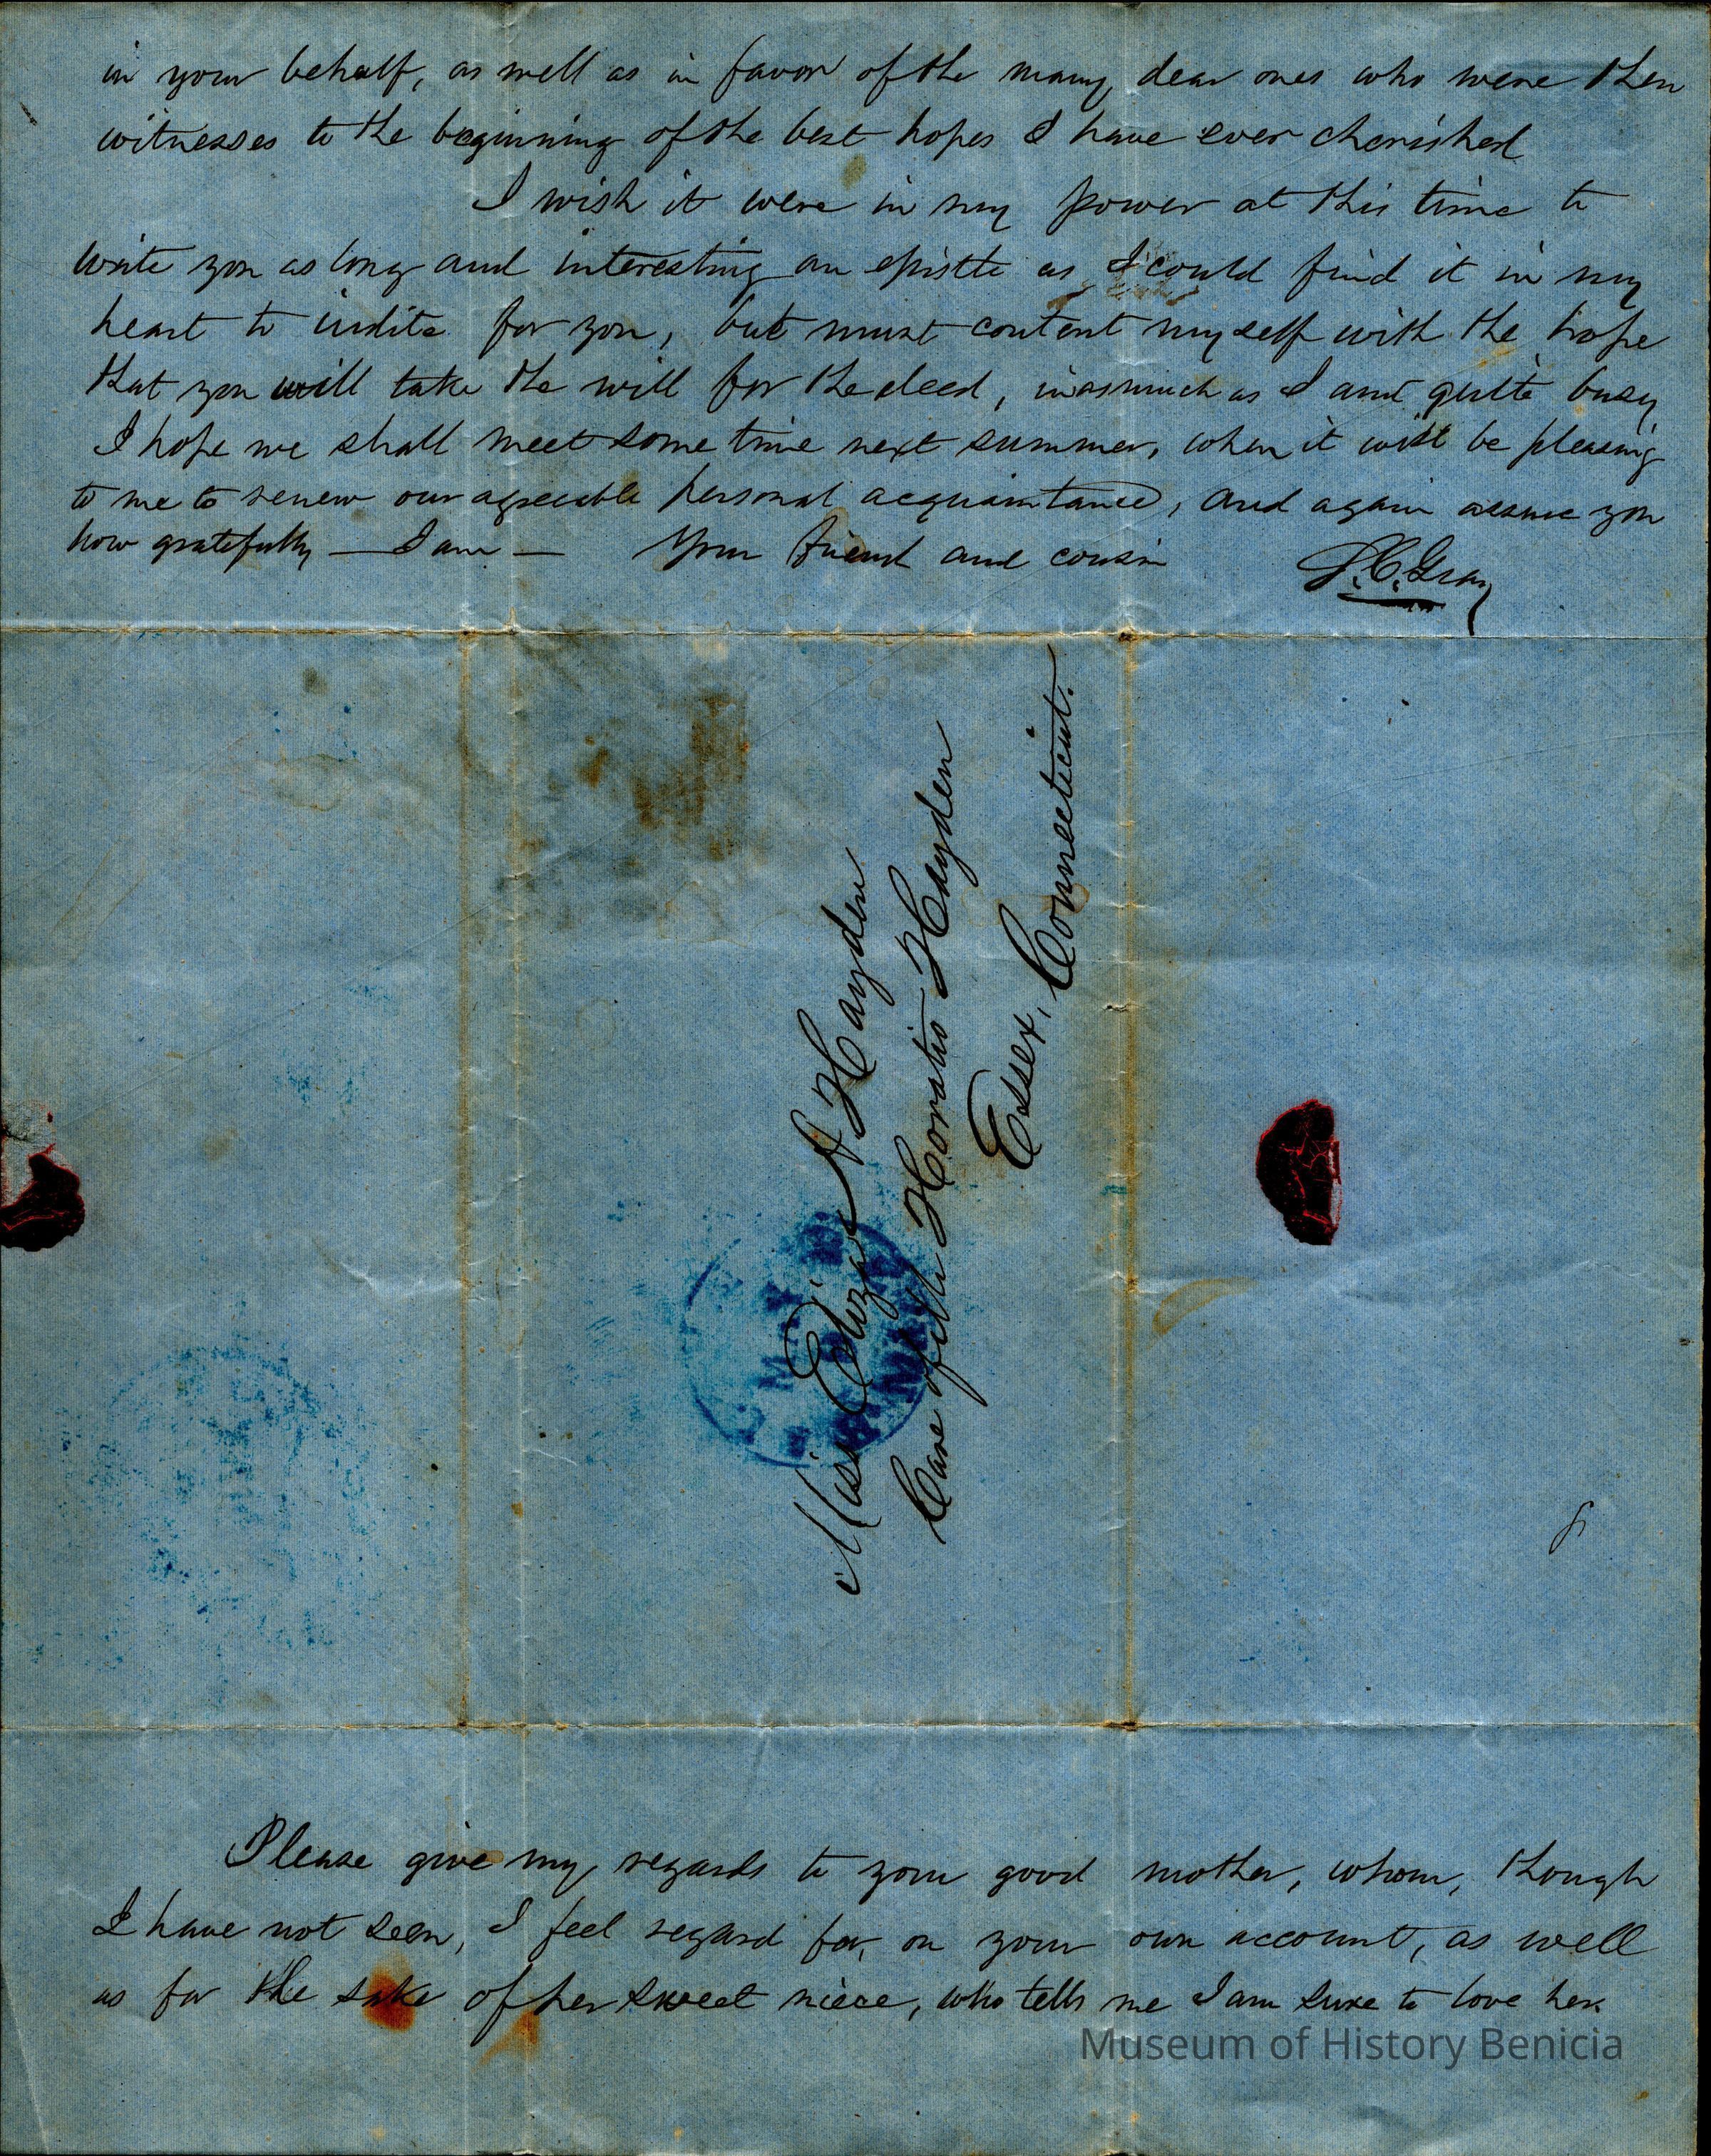 in your behalf, as well as in favor of the many dear ones who were then
witnesses to the beginning of the best hopes I have ever cherished
I wish it were in my power at this time to
write you as long and interesting an epistle as I could find it in my
heart to indite for you, but must content myself with the hope
that you will take the will for the deed, inasmuch as I am quite busy
I hope we shall meet some time next summer, when it will be pleasing
to me to renew our agreeable personal acquaintance, and again assure you
how gratefully — I am — Your friend and cousin
C. Gray
Miss Eliza A Hayden
Care of Horatio Hayden
Essex, Connecticut.
Please give my regards to your good mother, whom, though
I have not seen, I feel regard for, on your own account, as well
as for the sake of her sweet niece, who tells me I am sure to love her.
Museum of History Benicia